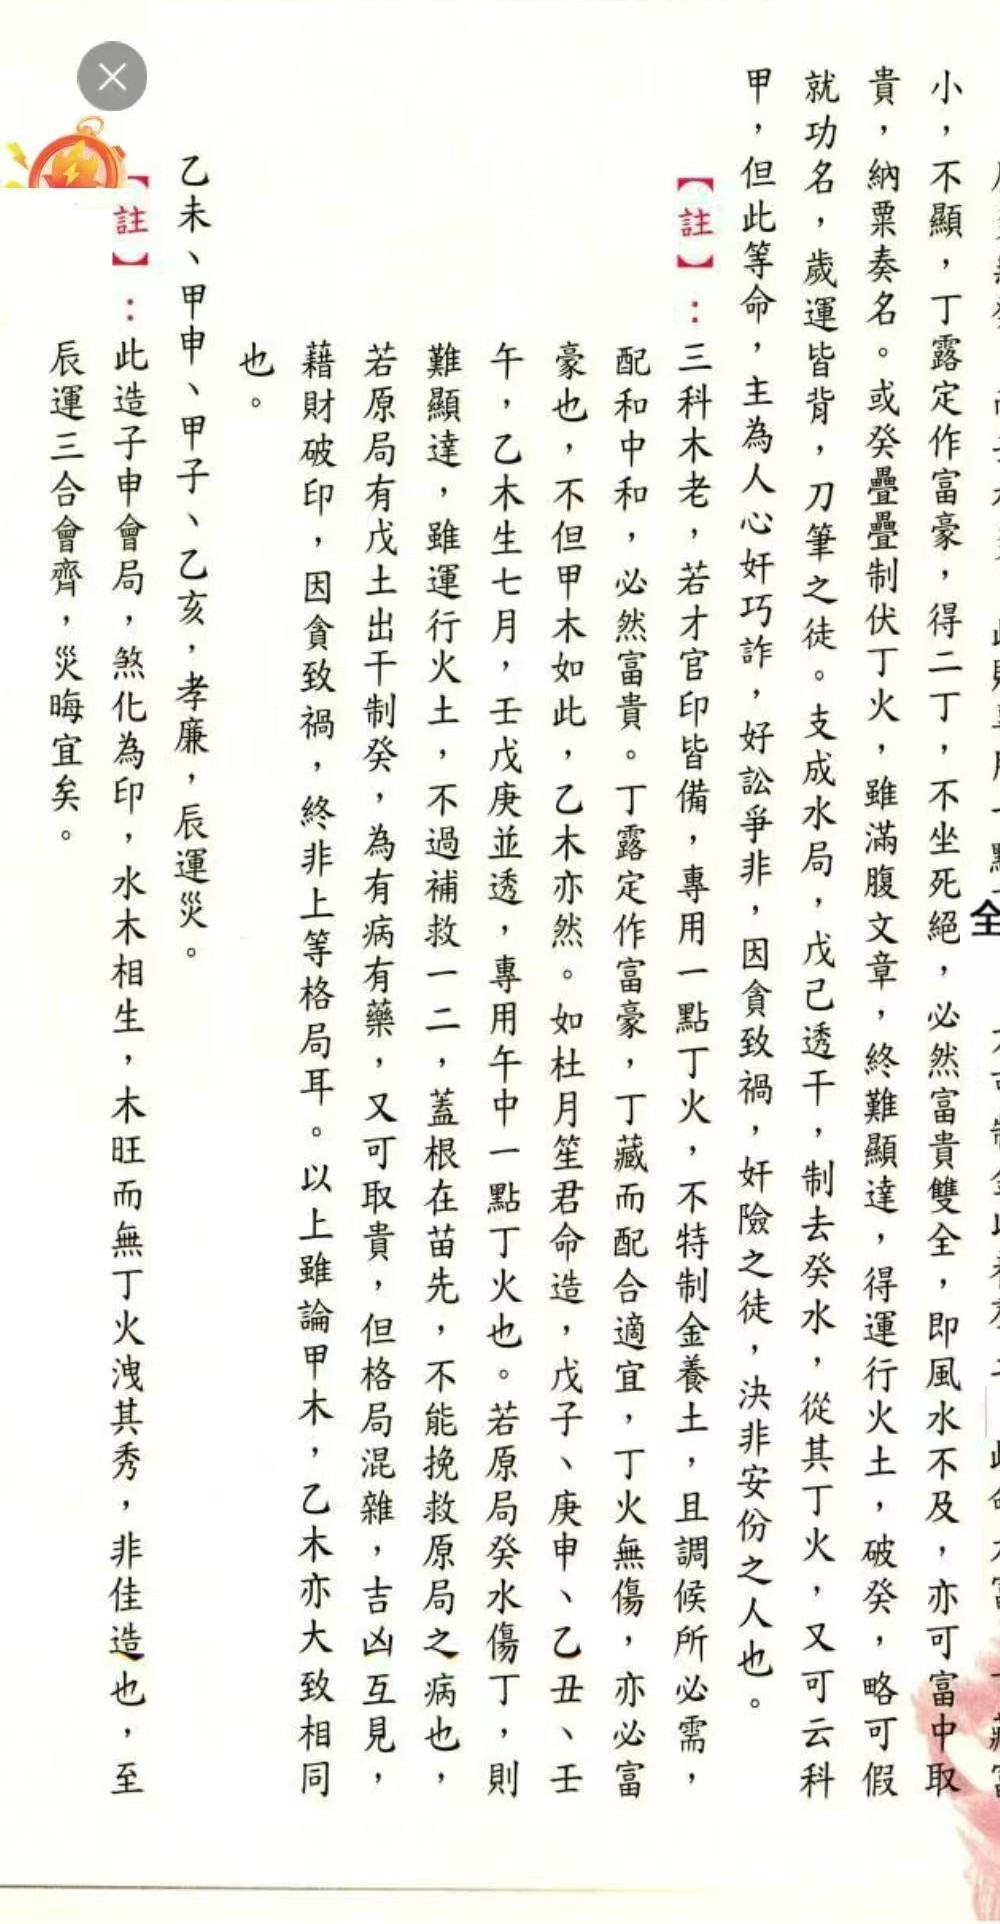 全
小，不顯，丁露定作富豪，得二丁，不坐死絕，必然富貴雙全，即風水不及，亦可富中取
貴，納粟奏名。或癸疊疊制伏丁火，雖滿腹文章，終難顯達，得運行火土，破癸，略可假
就功名，歲運皆背，刀筆之徒。支成水局，戊己透干，制去癸水，從其丁火，又可云科
甲，但此等命，主為人心奸巧詐，好訟爭非，因貪致禍，奸險之徒，決非安份之人也。
【註】：三科木老，若才官印皆備，專用一點丁火，不特制金養土，且調候所必需，
配和中和，必然富貴。丁露定作富豪，丁藏而配合適宜，丁火無傷，亦必富
豪也，不但甲木如此，乙木亦然。如杜月笙君命造，戊子、庚申、乙丑、壬
午，乙木生七月，壬戊庚並透，專用午中一點丁火也。若原局癸水傷丁，則
難顯達，雖運行火土，不過補救一二，蓋根在苗先，不能挽救原局之病也，
若原局有戊土出干制癸，為有病有藥，又可取貴，但格局混雜，吉凶互見，
藉財破印，因貪致禍，終非上等格局耳。以上雖論甲木，乙木亦大致相同
也。
乙未、甲申、甲子、乙亥，孝廉，辰運災。
【註】：此造子申會局，煞化為印，水木相生，木旺而無丁火洩其秀，非佳造也，至
辰運三合會齊，災晦宜矣。